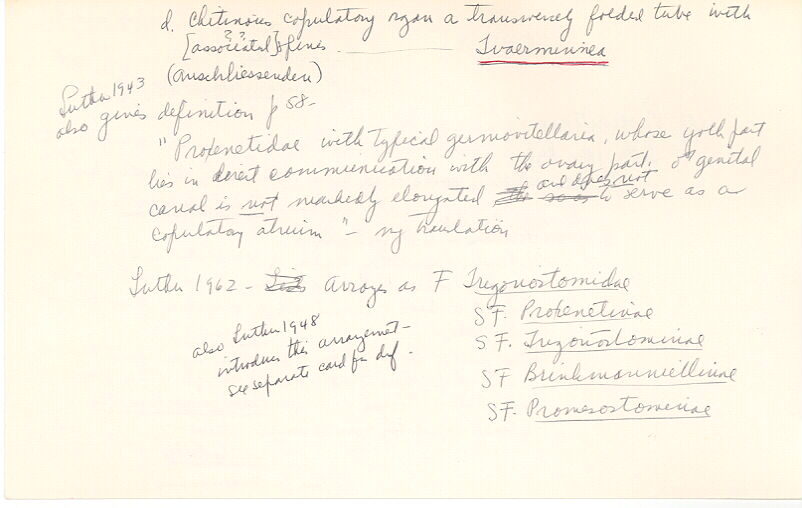 d. Chitinous copulatory organ a transversely folded tube with
[associated??] spines. Tvaerminnea
(anschliessenden)
Luther 1943
also gives definition p 58-
"Proxenetidae with typical germovitellaria, whose yolk part
lies in direct communication with the ovary part. ♂ genital
canal is not markedly elongated and does not to serve as a
copulatory atrium" - my translation
Luther 1962 - Arranges as F Trigonostomidae
SF. Proxenetinae
SF. Trigonostominae
SF Brinkmanniellinae
SF. Promesostominae
also Luther 1948
introduces this arrangement -
see separate card for def.